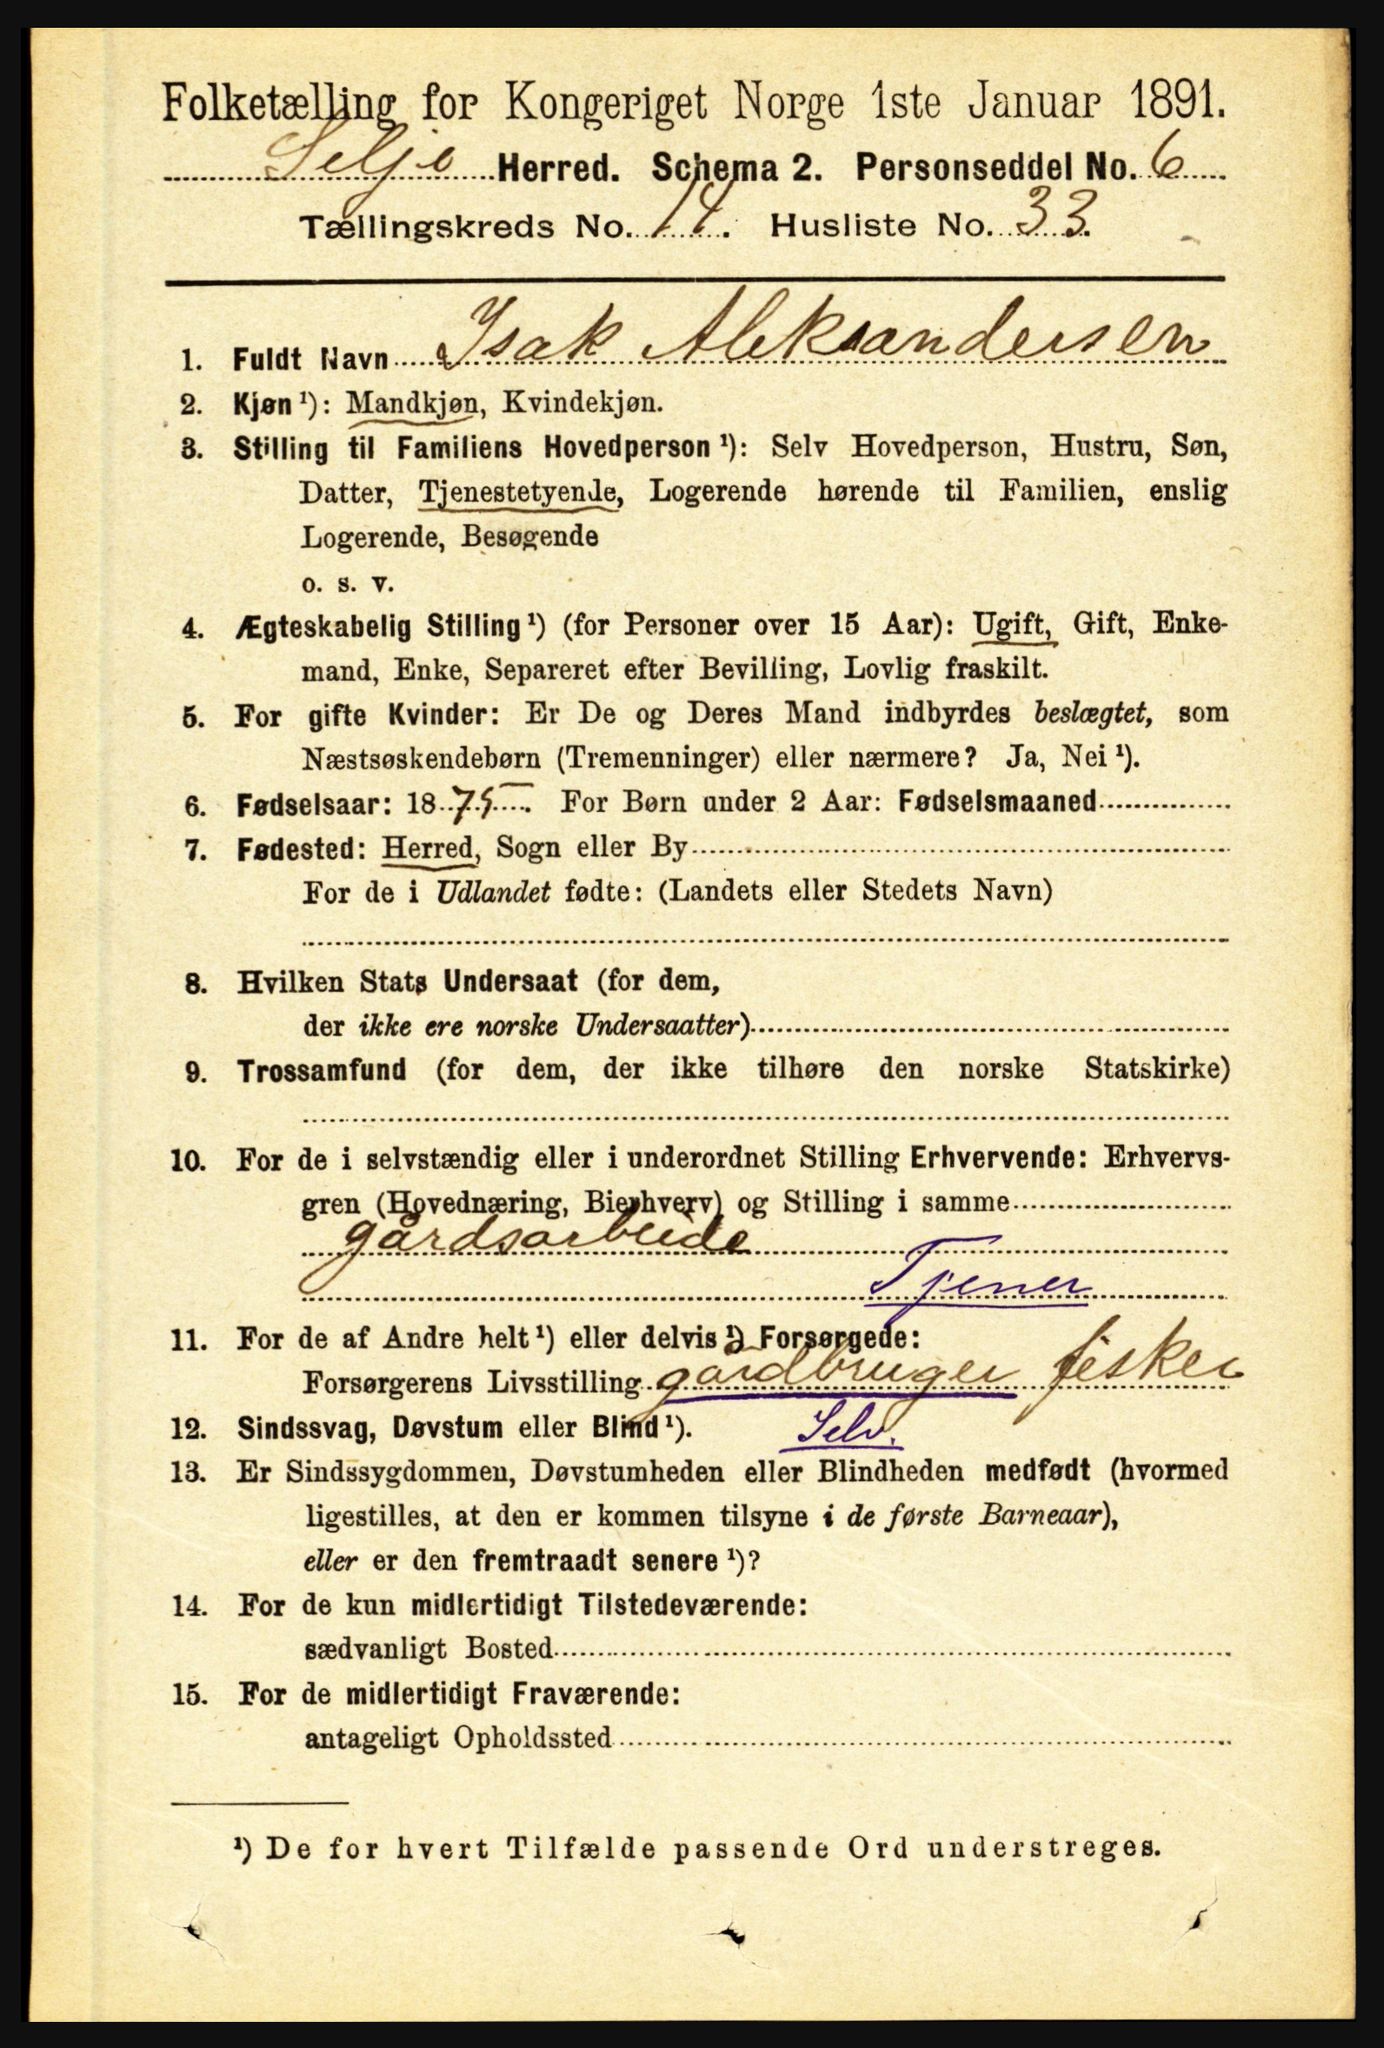 Folketælling for Kongeriget Norge 1ste Januar 1891.
Seljo Herred. Schema 2. Personseddel No. 6
Tællingskreds No. 14. Husliste No. 33.
1. Fuldt Navn Isak Aleksandersen
2. Kjøn ¹): Mandkjøn, Kvindekjøn.
3. Stilling til Familiens Hovedperson ¹): Selv Hovedperson, Hustru, Søn,
Datter, Tjenestetyende, Logerende hørende til Familien, enslig
Logerende, Besøgende
o. s. v.
4. Ægteskabelig Stilling ¹) (for Personer over 15 Aar): Ugift, Gift, Enke-
mand, Enke, Separeret efter Bevilling, Lovlig fraskilt.
5. For gifte Kvinder: Er De og Deres Mand indbyrdes beslægtet, som
Næstsøskendebørn (Tremenninger) eller nærmere? Ja, Nei ¹).
6. Fødselsaar: 1875. For Børn under 2 Aar: Fødselsmaaned
7. Fødested: Herred, Sogn eller By
For de i Udlandet fødte: (Landets eller Stedets Navn)
8. Hvilken Stats Undersaat (for dem,
der ikke ere norske Undersaatter)
9. Trossamfund (for dem, der ikke tilhøre den norske Statskirke)
10. For de i selvstændig eller i underordnet Stilling Erhvervende: Erhvervs-
gren (Hovednæring, Bierhverv) og Stilling i samme
gårdsarbeide
Tjener
11. For de af Andre helt ¹) eller delvis ¹) Forsørgede:
Forsørgerens Livsstilling gårdbruger fisker
12. Sindssvag, Døvstum eller Blind ¹). Selv.
13. Er Sindssygdommen, Døvstumheden eller Blindheden medfødt (hvormed
ligestilles, at den er kommen tilsyne i de første Barneaar),
eller er den fremtraadt senere ¹)?
14. For de kun midlertidigt Tilstedeværende:
sædvanligt Bosted
15. For de midlertidigt Fraværende:
antageligt Opholdssted
¹) De for hvert Tilfælde passende Ord understreges.